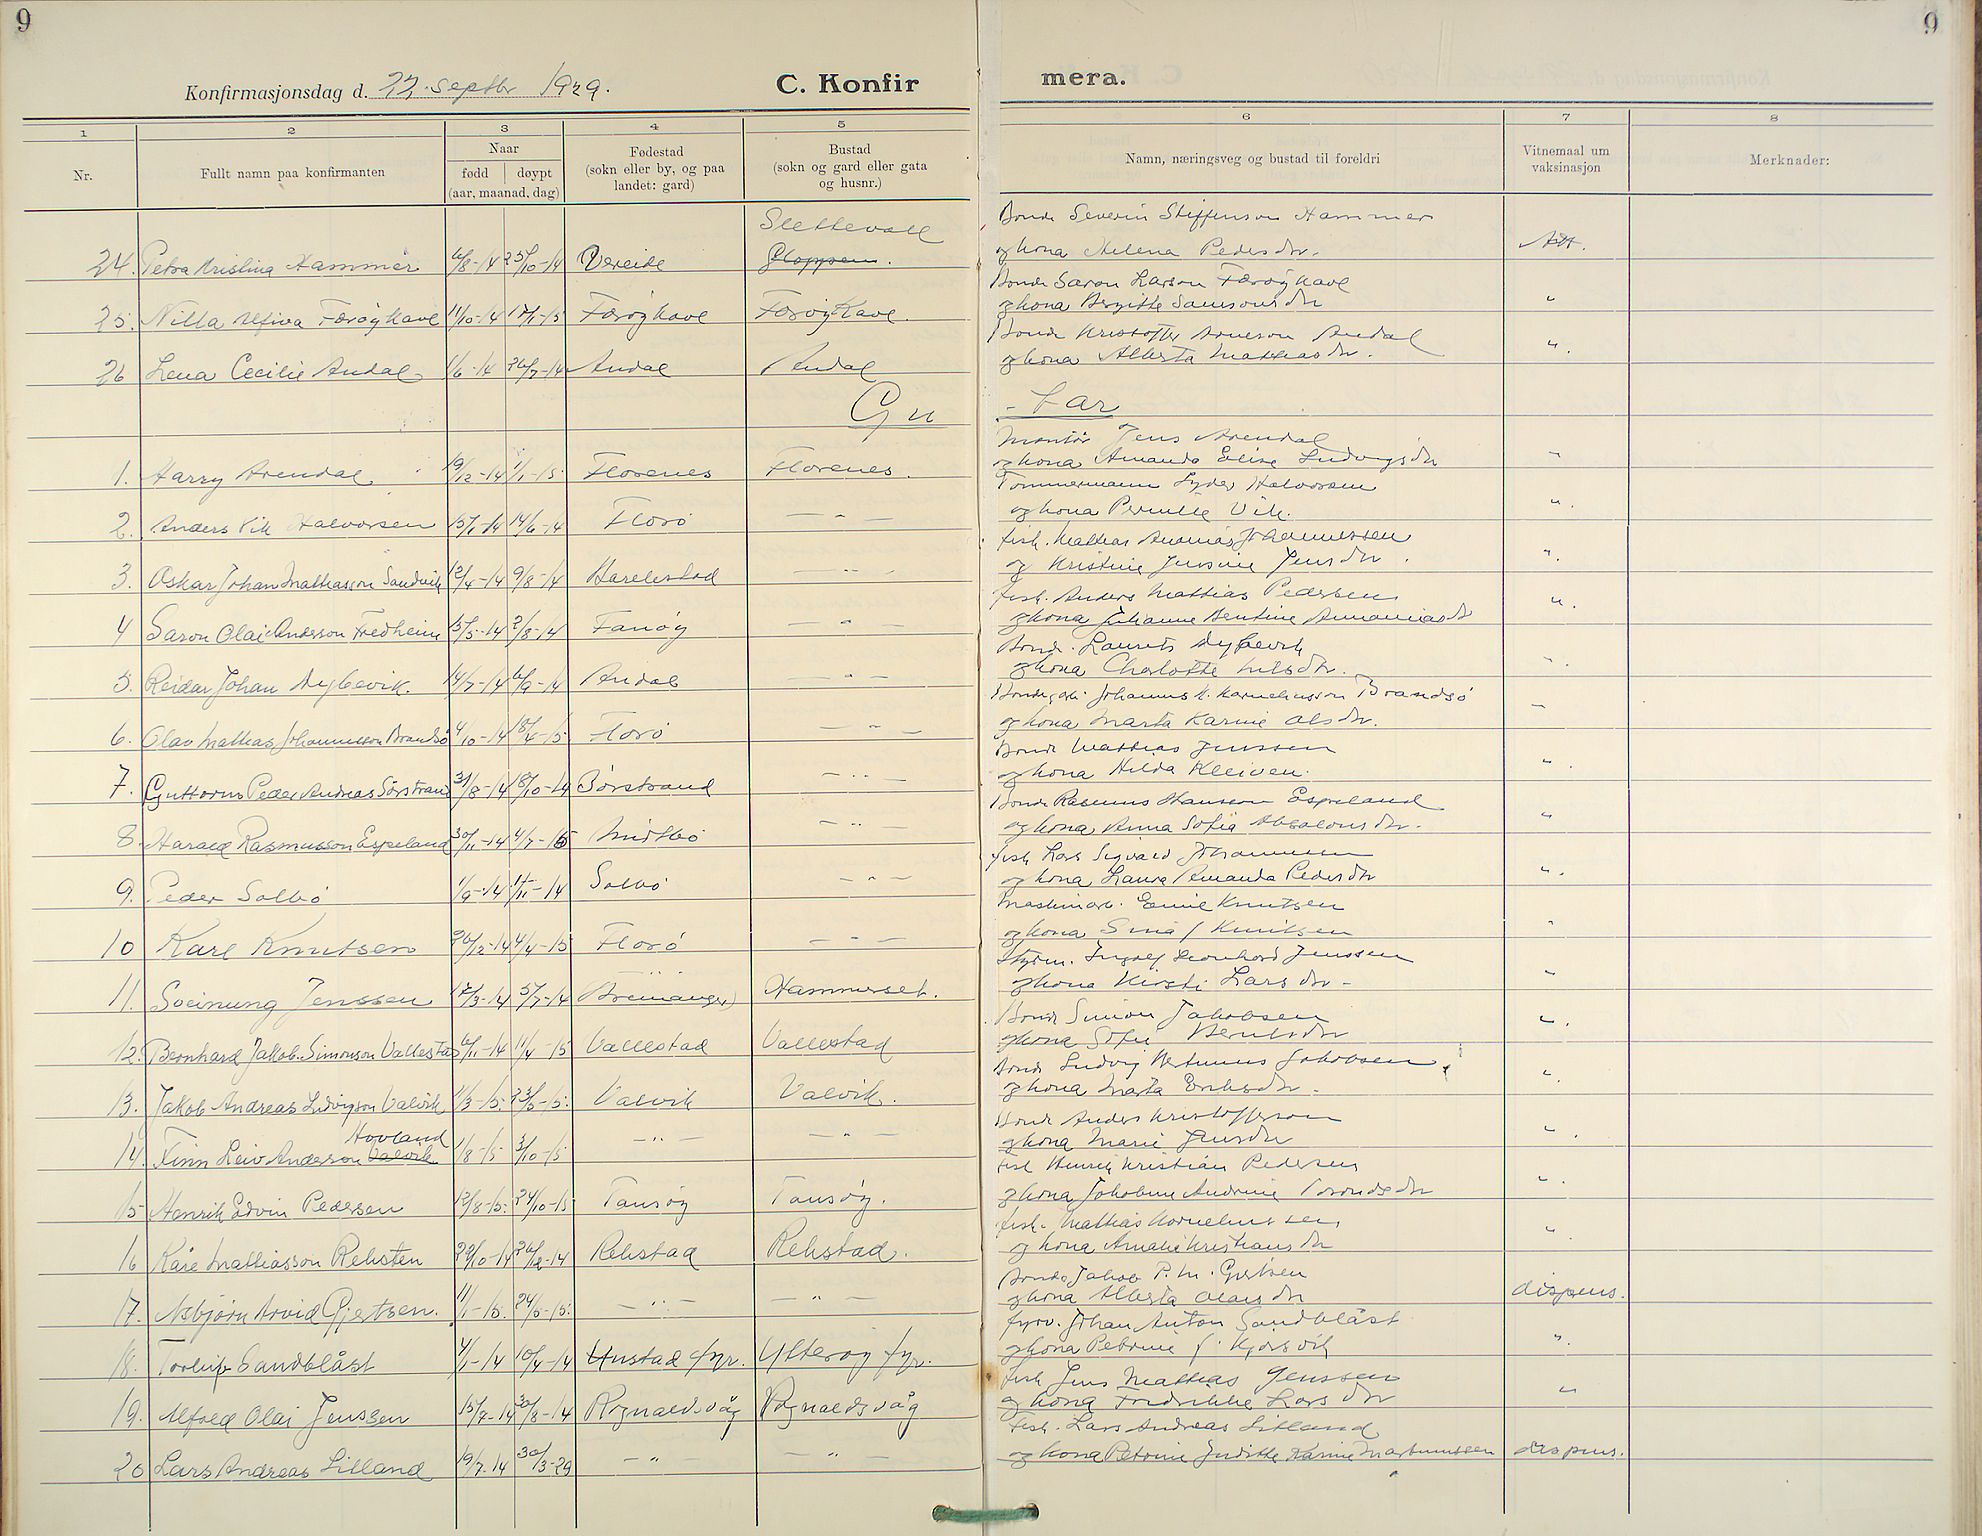 9
9
Konfirmasjonsdag d. 22. septbr 1929.
C. Konfir
mera.
1 2 3 4 5 6 7 8
Nr.
Fullt namn paa konfirmanten
Naar
fødd døypt
(aar, maanad, dag)
Fødestad
(sokn eller by, og paa
landet: gard)
Bustad
(sokn og gard eller gata
og husnr.)
Namn, næringsveg og bustad til foreldri
Vitnemaal um
vaksinasjon
Merknader:
Slettevoll
Bonde Severin Steffenson Hammer
24. Petra Kristina Hammer 6/8-14 25/10-14 Vereide Gloppen. og kona Helena Pedersdtr. Att.
Bonde Saron Larson Færøykave
25. Nilla Alfiva Færøykave 11/10-14 17/1-15 Færøykave Færøykave. og kona Bergitte Samsonsdtr "
Bonde Kristoffer Arneson Andal
26 Lena Cecilie Andal 1/6-14 26/7-14 Andal Andal og kona Alberta Mathiasdtr. ".
Gu - tar
Montør Jens Arendal
1. Harry Arendal 19/12-14 1/1-15 Florenes Florenes. og kona Amanda Elise Ludvigsdtr "
Tømmermann Syder Halvorsen
2. Anders Vik Halvorsen 15/1-14 14/6-14 Florø — " — og kona Pernille Vik. ".
fisk. Mathias Ananias Johannessen
3. Oskar Johan Mathiasson Sandvik 12/4-14 9/8-14 Barekstad — " — og Kristine Jensine Jensdtr. ".
fisk. Anders Mathias Pedersen
4 Saron Olai Anderson Fredheim 15/5-14 2/8-14 Fanøy — " — og kona Johanne Bentine Annaniasdtr ".
Bonde. Laurits Dybevik
5. Reidar Johan Dybevik. 14/7-14 6/9-14 Andal — " — og kona Charlotte Nilsdtr. ".
Johannes K. Korneliusson Brandsø
6. Olav Mathias Johannesson Brandsø 4/10-14 18/4-15 Florø — " — og kona Marta Karine Olsdtr. "
Bonde Mathias Jenssen
7. Guttorm Peder Andreas Sørstrand 31/8-14 18/10-14 Sørstrand — " — og kona Hilda Kleiven. ".
Bonde Rasmus Hanson Espeland
8. Harald Rasmusson Espeland 30/11-14 4/7-15 Midtbø — " — og kona Anna Sofia Absalonsdtr. "
fisk Lars Sigvald Johannessen
9. Peder Solbø 1/9-14 15/11-14 Solbø — " — og kona Laura Amanda Pedersdtr ".
Maskinarb. Emil Knutsen
10 Karl Knutsen 26/12-14 4/4-15 Florø — " — og kona Sina f Knutsen "
Styrm. Ingolf Leonhard Jenssen
11. Sveinung Jenssen 17/3-14 5/7-14 Bremanger) Hammerset. og kona Kirsti Larsdtr- "
Bonde Simon Jakobsen
12. Bernhard Jakob Simonson Vallestad 6/11-14 11/4-15 Vallestad Vallestad og kona Sofie Berntsdtr ".
Bonde Ludvig Bertinus Jakobsen
13. Jakob Andreas Ludvigson Valvik 11/3-15. 23/5-15. Valvik Valvik. og kona Marta Eriksdtr. ".
Hovland
Bonde Anders Kristofferson
14. Finn Leiv Anderson Valvik 1/8-15 3/10-15 — " — — " — og kona Marie Jensdtr ".
fisk Henrik Kristian Pedersen
15 Henrik Edvin Pedersen 12/8-15. 24/10-15 Tansøy Tansøy. og kona Jakobine Andrine Torondsdtr ".
fisk. Mathias Korneliussen,
16 Kåre Mathiasson Reksten 29/10-14 26/12-14 Rekstad Rekstad. og kona Amalie Kristiansdtr "
Bonde Jakob P. M. Gjertsen
17. Asbjørn Arvid Gjertsen. 11/1-15. 24/5-15. — " — — " — og kona Alberta Olaisdtr dispens.
fyrv. Johan Anton Sandblåst
18. Torleif Sandblåst 4/1-14 10/4-14 Hustad fyr. Ytterøy fyr. og kona Petrine f. Kjørsvik ".
fisk Jens Mathias Jenssen
19. Alfred Olai Jenssen 15/7-14 30/8-14 Rognaldsvåg Rognaldsvåg og kona Fredrikke Larsdtr "
Fisk. Lars Andreas Lilland
20 Lars Andreas Lilland 19/7.14 30/3-29 — " — — " — og kona Petrine Judithe Karine Martinussen dispens.